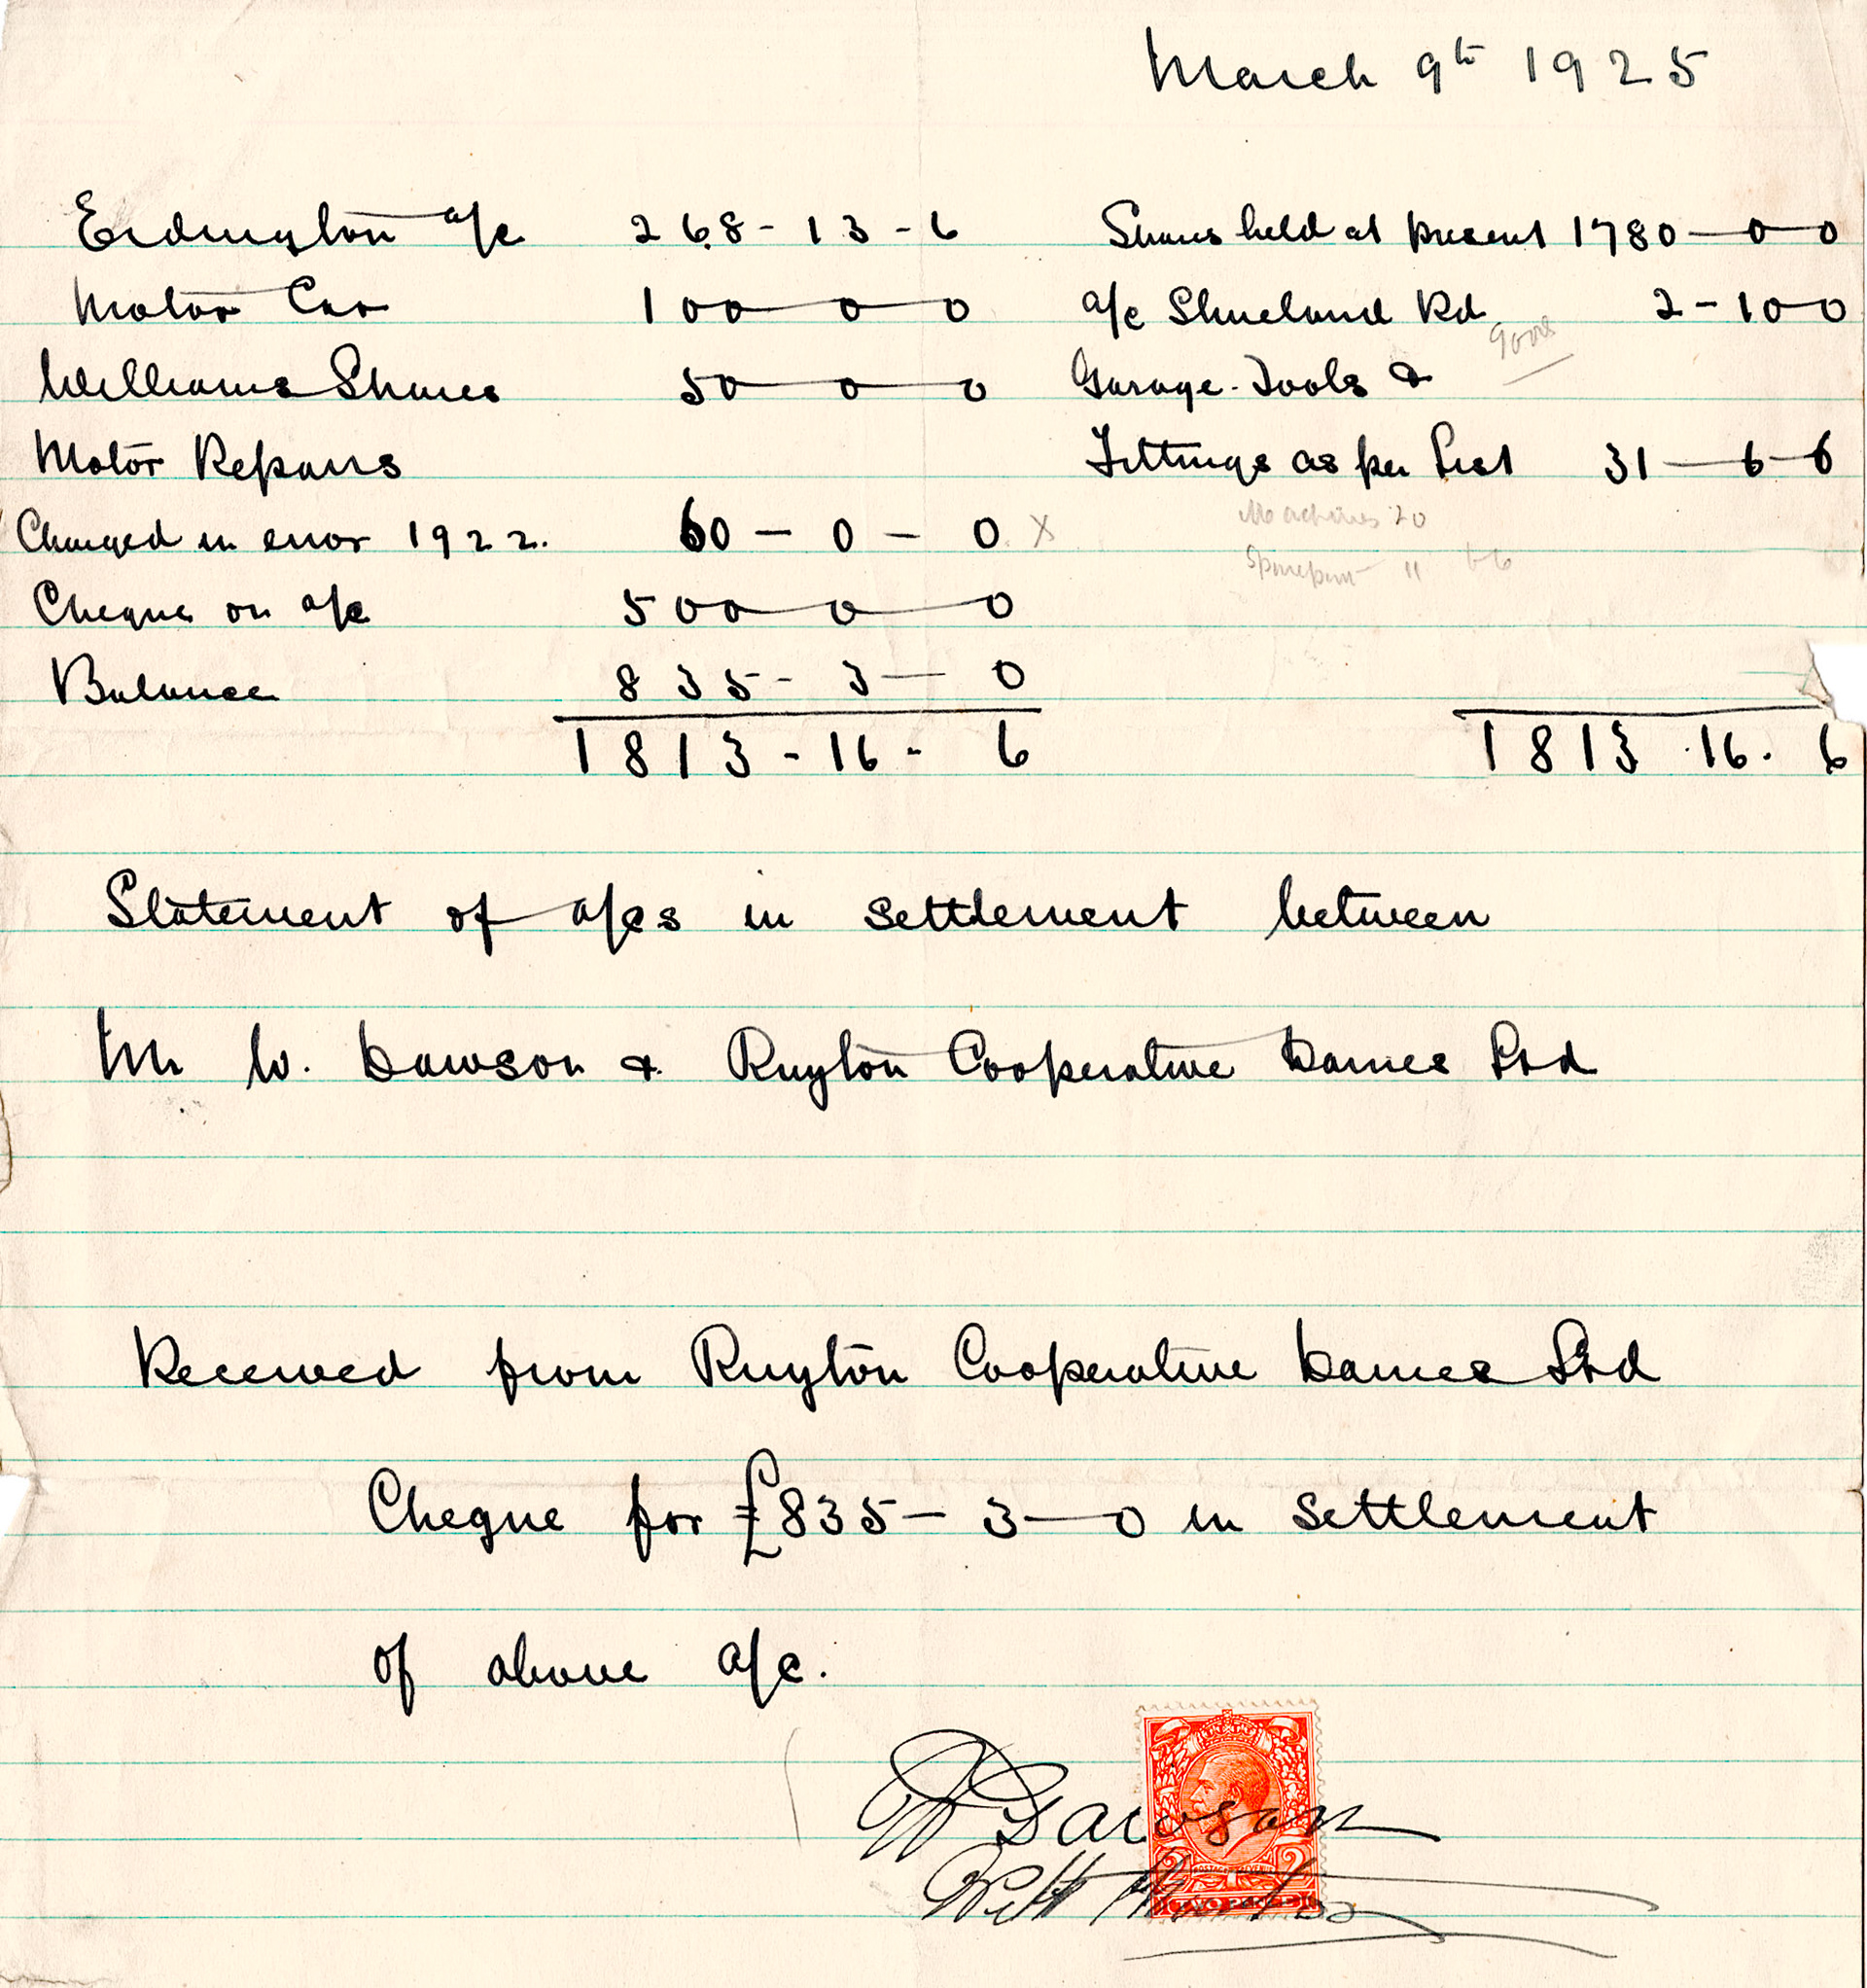 March 9th 1925
Erdington a/c 268-13-6 Shares held at present 1780-0-0
Motor Car 100-0-0 a/c Shireland Rd 2-10-0
Williams Shares 50-0-0 Garage Tools &
Motor Repairs Fittings as per List 31-6-6
Machines 20
Charged in error 1922. 60-0-0 X
11 6 6
Cheque on a/c 500-0-0
Balance 835-3-0
1813-16-6 1813.16.6
Statement of a/cs in settlement between
Mr W. Dawson & Ruyton Cooperative Dairies Ltd
Received from Ruyton Cooperative Dairies Ltd
Cheque for £835-3-0 in settlement
of above a/c.
W Dawson
POSTAGE REVENUE
2 2
TWO PENCE